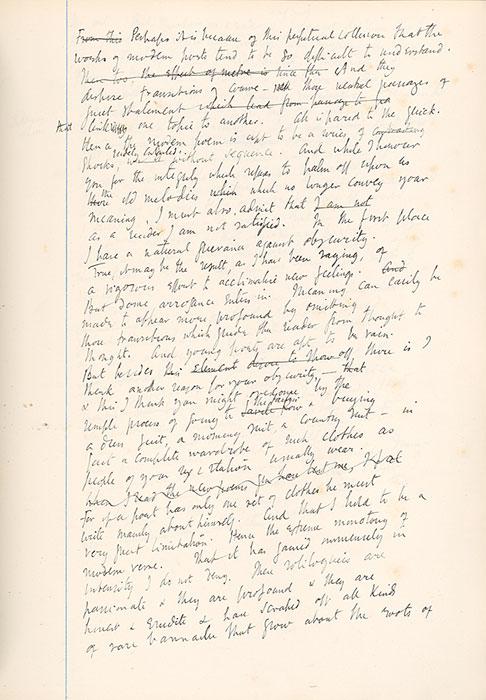 From this Perhaps it is because of this perpetual collision that the
works of modern poets tend to be so difficult to understand.
Then too the effect of metre is since then And they
despise transitions of course - those neutral passages of
quiet statement which lead from passage to
that link one topic to another. All is pared to the quick.
then a modern poem is apt to be a series of
shocks, without sequence. And while I honour
you for the integrity which refuses to palm off upon us
the old melodies which which no longer convey your
meaning, I must also admit that I am not
as a reader I am not satisfied. In the first place
I have a natural grievance against obscurity.
True, it may be the result, as I have been saying, of
a vigorous effort to acclimatise new feelings. And
But some arrogance enters in. Meaning can easily be
made to appear more profound by omitting
those transitions which guide the reader from thought to
thought. And young poets are apt to be vain.
But besides this element desire to show off, there is I
think another reason for your obscurity — that
& this I think you might overcome by the
simple process of going to & buying
a dress suit, a morning suit a country suit - in
fact a complete wardrobe of such clothes as
people of your age & station usually wear.
When I read the new poems you have sent me, I feel
For if a poet has only one set of clothes he must
write mainly about himself. And that I hold to be a
very great limitation. Hence the extreme monotony of
modern verse. That it has gained immensely in
intensity I do not deny. These soliloquies are
passionate & they are profound & they are
honest & erudite & have scraped off all kinds
of rare barnacles that grow about the roots of